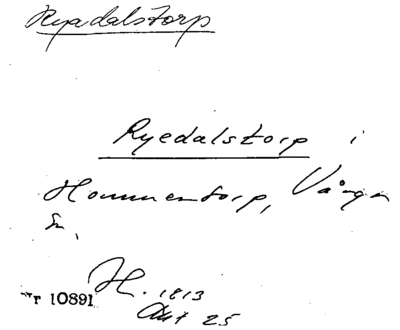 Ryedalstorp
Ryedalstorp i
Hommentorp, Vånga
sn.
H. 1813
nr 10891
Akt 25